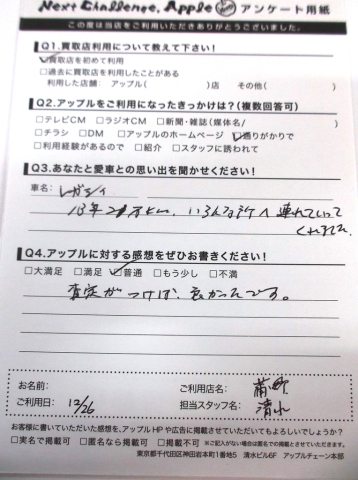 Next Challenge, Apple アンケート用紙
この度は当店をご利用いただきありがとうございました。
Q1.買取店利用について教えて下さい!
☑買取店を初めて利用
□過去に買取店を利用したことがある
利用した店舗: アップル( )店 その他( )
Q2.アップルをご利用になったきっかけは?(複数回答可)
□テレビCM □ラジオCM □新聞・雑誌(媒体名/ )
□チラシ □DM □アップルのホームページ ☑通りがかりで
□利用経験があるので □紹介 □スタッフに誘われて
Q3.あなたと愛車との思い出を聞かせください!
車名: レガシィ
13年 21万km、いろんな所へ連れていって
くれました
Q4.アップルに対する感想をぜひお書きください!
□大満足 □満足 ☑普通 □もう少し □不満
査定がつけば、良かったです。
お名前: ご利用店名:
ご利用日: 12/26 担当スタッフ名: 清水
お客様に書いていただいた感想を、アップルHPや広告に掲載させていただいてもよろしいでしょうか?
□実名で掲載可 □匿名なら掲載可 □掲載不可 ※ご記入がない場合は匿名での掲載とさせていただきます。
東京都千代田区神田岩本町1番地5 清水ビル6F アップルチェーン本部